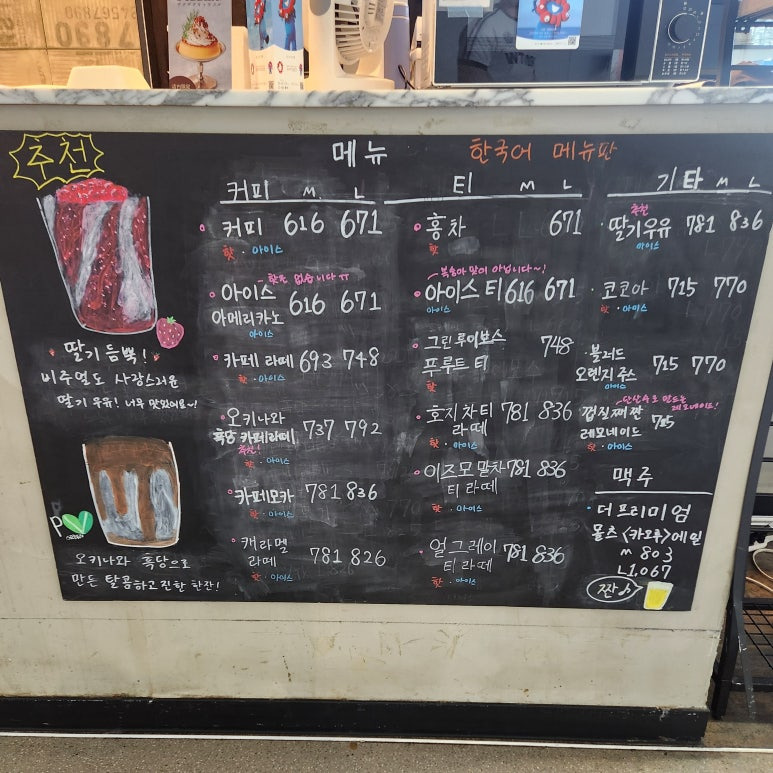 추천
메뉴
한국어 메뉴판
커피 M L
커피 616 671
핫 · 아이스
핫은 없습니다 ㅠㅠ
아이스
아메리카노 616 671
아이스
카페 라떼 693 748
핫 · 아이스
오키나와
흑당 카페라떼 737 792
추천!
핫 · 아이스
카페모카 781 836
핫 · 아이스
캐라멜
라떼 781 826
핫 · 아이스
티 M L
홍차 671
핫
복숭아 맛이 아닙니다~!
아이스 티 616 671
아이스
그린 루이보스
푸루트 티 748
핫
호지차 티
라떼 781 836
핫 · 아이스
이즈모 말차
티 라떼 781 836
핫 · 아이스
얼그레이
티 라떼 781 836
핫 · 아이스
기타 M L
추천
딸기우유 781 836
아이스
코코아 715 770
핫 · 아이스
블러드
오렌지 쥬스 715 770
아이스
탄산수로 만드는
레모네이드!
껍질째 짠
레모네이드 715
맥주
더 프리미엄
몰츠 <카오루>에일
M 803
L 1,067
짠♪
딸기 듬뿍!
비주얼도 사랑스러운
딸기 우유! 너무 맛있어요~!
오키나와 흑당으로
만든 달콤하고 진한 한잔!